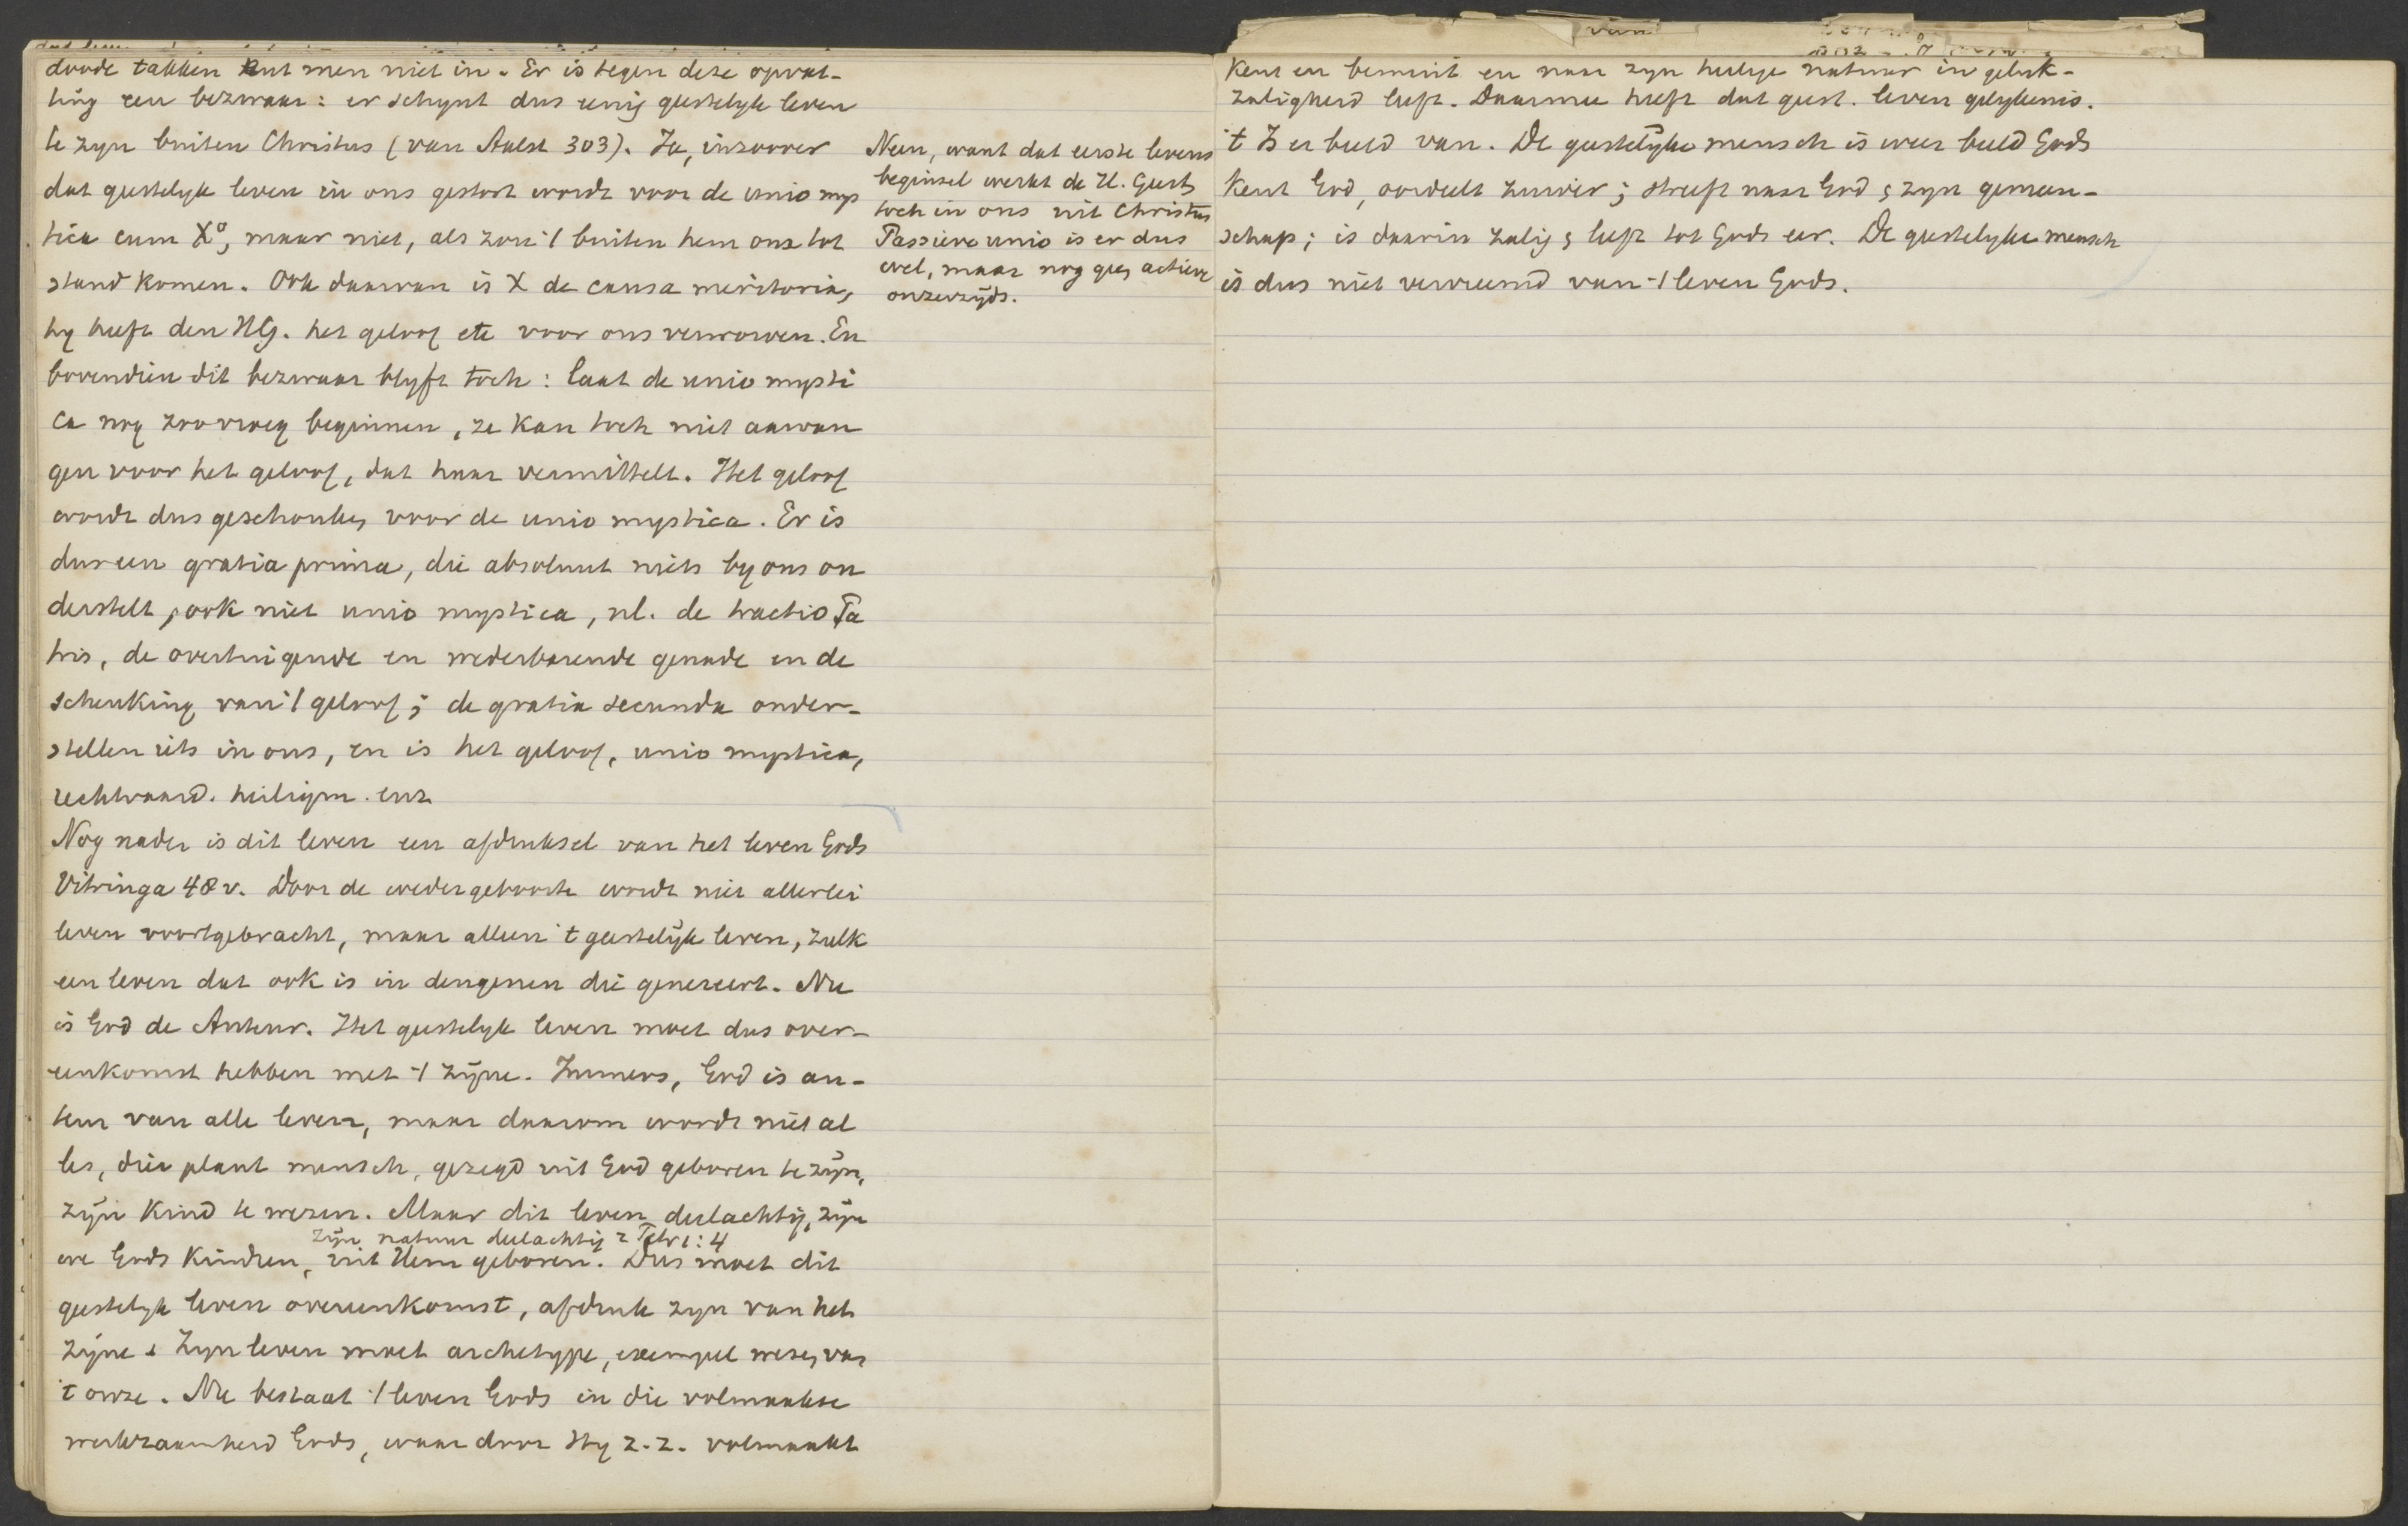 doode takken ent men niet in. Er is tegen deze opvat-
ting een bezwaar: er schynt dus eenig geestelyk leven
te zyn buiten Christus (van Aalst 303). Ja, inzoover
dat geestelyk leven in ons gestort wordt voor de unio mys
tica cum Xo, maar niet, als zou 't buiten hem om tot
stand komen. Ook daarvan is X de causa meritoria,
hy heeft den HG. het geloof etc voor ons verworven. En
bovendien dit bezwaar blyft toch: laat de unio mysti
ca nog zoo vroeg beginnen, ze kan toch niet aanvan
gen voor het geloof, dat haar vermittelt. Het geloof
wordt dus geschonken voor de unio mystica. Er is
dus een gratia prima, die absoluut niets by ons on
derstelt, ook niet unio mystica, nl. de tractio Pa
tris, de overtuigende en wederbarende genade en de
schenking van 't geloof; de gratia secunda onder-
stellen iets in ons, en is het geloof, unio mystica,
rechtvaard. heiligm. enz
Nog nader is dit leven een afdruksel van het leven Gods
Vitringa 48 v. Door de wedergeboorte wordt niet allerlei
leven voortgebracht, maar alleen 't geestelijk leven, zulk
een leven dat ook is in dengenen die genereert. Nu
is God de Auteur. Het geestelyk leven moet dus over-
eenkomst hebben met 't zijne. Immers, God is au-
teur van alle leven, maar daarom wordt niet al
les, dier plant mensch, gezegd uit God geboren te zijn,
zijn Kind te wezen. Maar dit leven deelachtig, zijn
zijn natuur deelachtig 2 Petr 1:4
we Gods Kinderen, uit Hem geboren. Dus moet dit
geestelyk leven overeenkomst, afdruk zyn van het
zijne. Zyn leven moet archetype, exempel wezen van
't onze. Nu bestaat 't leven Gods in die volmaakte
werkzaamheid Gods, waar door Hy z.z. volmaakt
Neen, want dat eerste levens
beginsel werkt de H. Geest
toch in ons uit Christus
Passieve unio is er dus
wel, maar nog geen actieve
onzerzijds.
van
kent en bemint en naar zyn heilige natuur in geluk-
zaligheid leeft. Daarmee heeft dat geest. leven gelykenis.
't Is er beeld van. De geestelijke mensch is weer beeld Gods
kent God, oordeelt zuiver; streeft naar God & zyn gemeen-
schap; is daarin zalig & leeft tot Gods eer. De geestelyke mensch
is dus niet vervreemd van 't leven Gods.